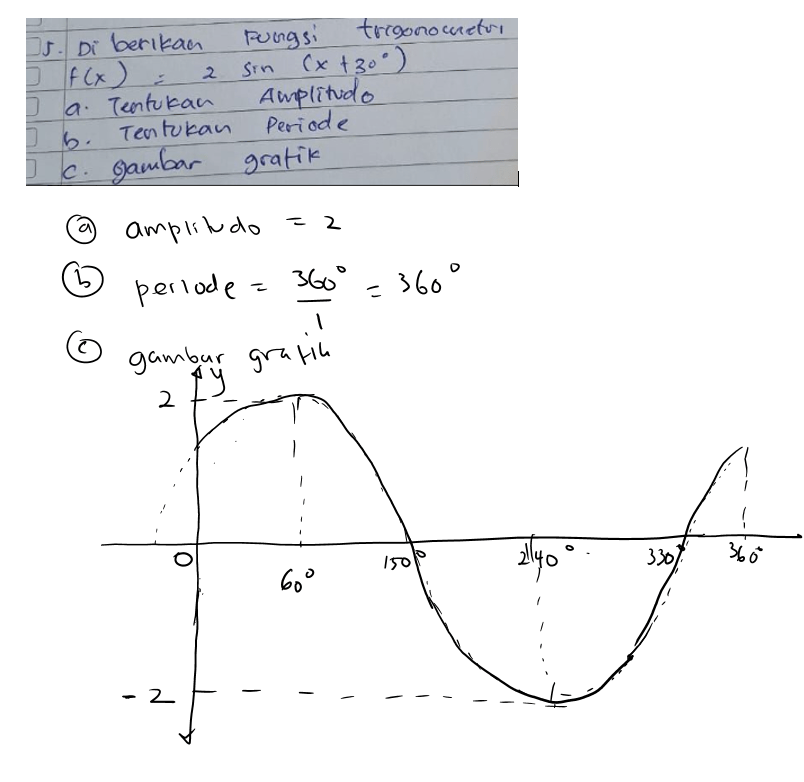 5. Di berikan Fungsi trigonometri
f(x) = 2 sin (x + 30°)
a. Tentukan Amplitudo
b. Tentukan Periode
c. gambar grafik
(a) amplitudo = 2
(b) periode = 360°/1 = 360°
(c) gambar grafik
y
2
0
60°
150°
240°
330°
360°
-2